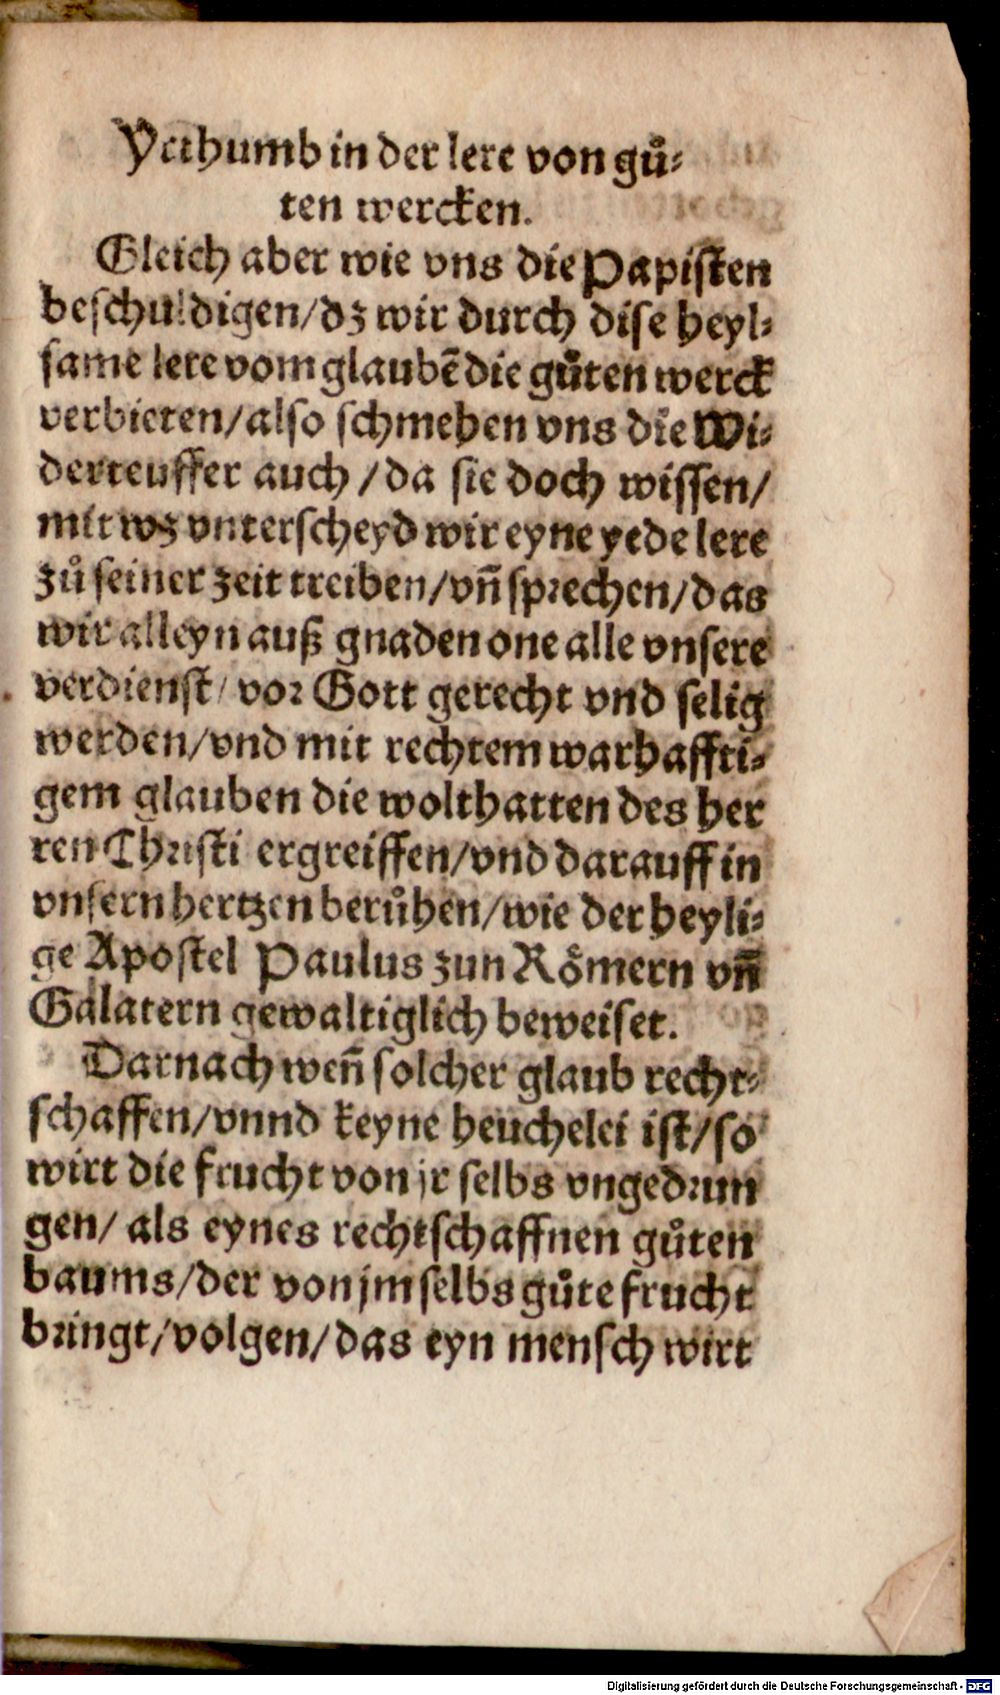 Yrthumb in der lere von gůͤ⸗
ten wercken.
Gleich aber wie vns die Papisten
beschuldigen/dz wir durch dise heyl⸗
same lere vom glaubẽ die gůten werck
verbieten/also schmehen vns die Wi⸗
derteuffer auch/da sie doch wissen/
mit wz vnterscheyd wir eyne yede lere
zů seiner zeit treiben/vñ sprechen/das
wir alleyn auß gnaden one alle vnsere
verdienst/vor Gott gerecht vnd selig
werden/vnd mit rechtem warhaffti⸗
gem glauben die wolthatten des her
ren Christi ergreiffen/vnd darauff in
vnsern hertzen berůhen/wie der heyli⸗
ge Apostel Paulus zun Römern vñ
Galatern gewaltiglich beweiset.
Darnach weñ solcher glaub recht⸗
schaffen/vnnd keyne heuchelei ist/so
wirt die frucht von jr selbs vngedrun
gen/als eynes rechtschaffnen gůten
baums/der von jm selbs gůte frucht
bringt/volgen/das eyn mensch wirt
Digitalisierung gefördert durch die Deutsche Forschungsgemeinschaft - DFG